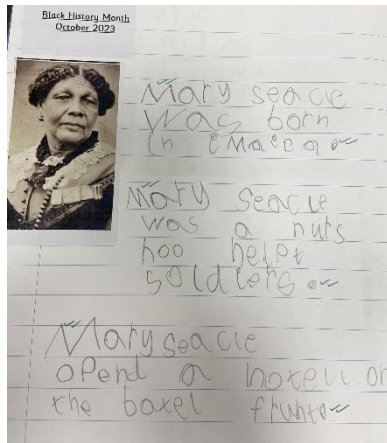 Black History Month
October 2023
Mary seacle
was born
in emaica
Mary Seacle
was a nurs
hoo helpt
soldiers
Mary seacle
opend a hotell on
the batel frunt